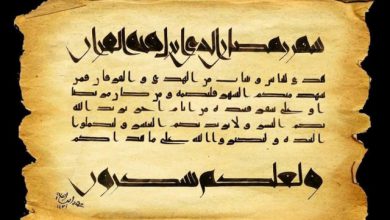 شهر رمضان الذي انزل فيه القران
هدى للناس و بينات من الهدى و الفرقان فمن
شهد منكم الشهر فليصمه و من كان مريضا
او على سفر فعدة من ايام اخر يريد الله
بكم اليسر ولا يريد بكم العسر و لتكملوا
العدة و لتكبروا الله على ما هداكم
ولعلكم تشكرون